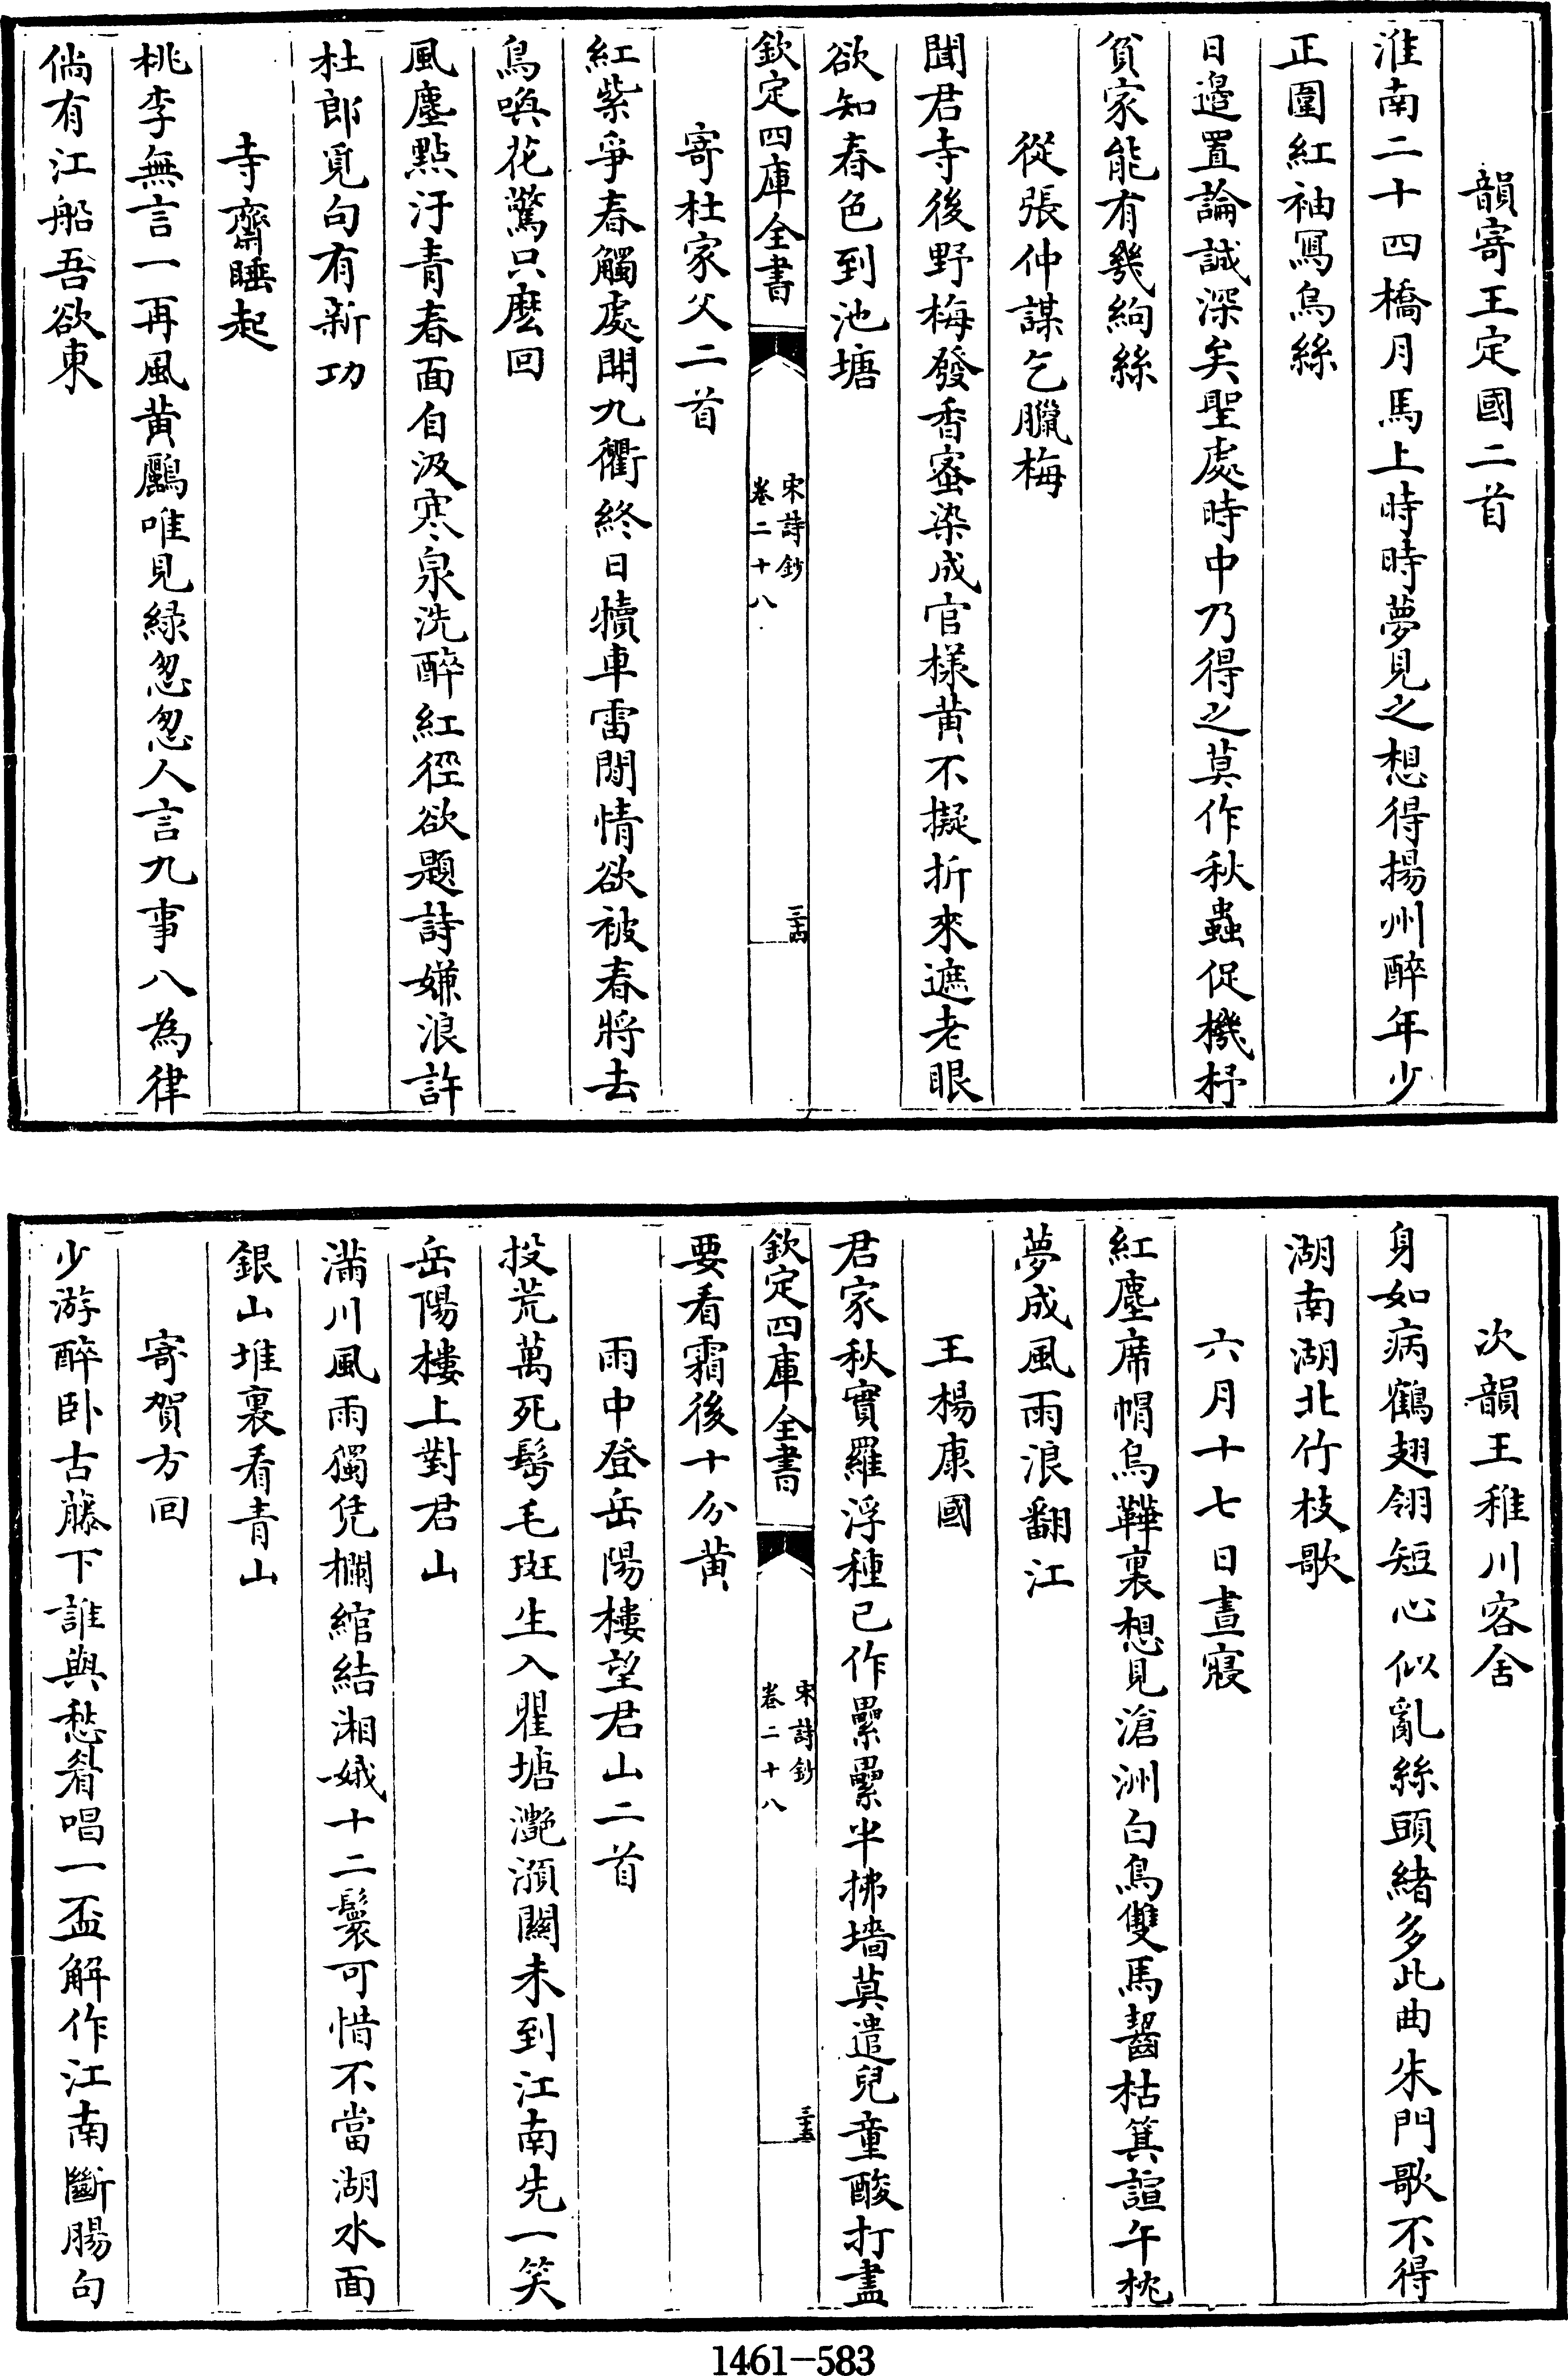 韻寄王定國二首
淮南二十四橋月馬上時時夢見之想得揚州醉年少
正圍紅袖寫烏絲
日邉置論誠深矣聖處時中乃得之莫作秋蟲促機杼
貧家能有幾絇絲
從張仲謀乞臘梅
聞君寺後野梅發香蜜染成官様黄不擬折來遮老眼
欲知春色到池塘
欽定四庫全書
宋詩鈔
卷二十八
三十四
寄杜家父二首
紅紫爭春觸處開九衢終日犢車雷閒情欲被春將去
鳥喚花驚只麽回
風塵點汙青春面自汲寒泉洗醉紅徑欲題詩嫌浪許
杜郎覓句有新功
寺齋睡起
桃李無言一再風黄鸝唯見緑怱怱人言九事八為律
倘有江船吾欲東
次韻王稚川客舍
身如病鶴翅翎短心似亂絲頭緒多此曲朱門歌不得
湖南湖北竹枝歌
六月十七日晝寢
紅塵席帽烏鞾裏想見滄洲白鳥雙馬齧枯萁諠午枕
夢成風雨浪翻江
王楊康國
君家秋實羅浮種已作纍纍半拂墻莫遣兒童酸打盡
欽定四庫全書
宋詩鈔
卷二十八
三十五
要看霜後十分黄
雨中登岳陽樓望君山二首
投荒萬死鬢毛斑生入瞿塘灧澦關未到江南先一笑
岳陽樓上對君山
滿川風雨獨凭欄綰結湘娥十二鬟可惜不當湖水面
銀山堆裏看青山
寄賀方回
少游醉卧古藤下誰與愁眉唱一盃解作江南斷腸句
1461-583